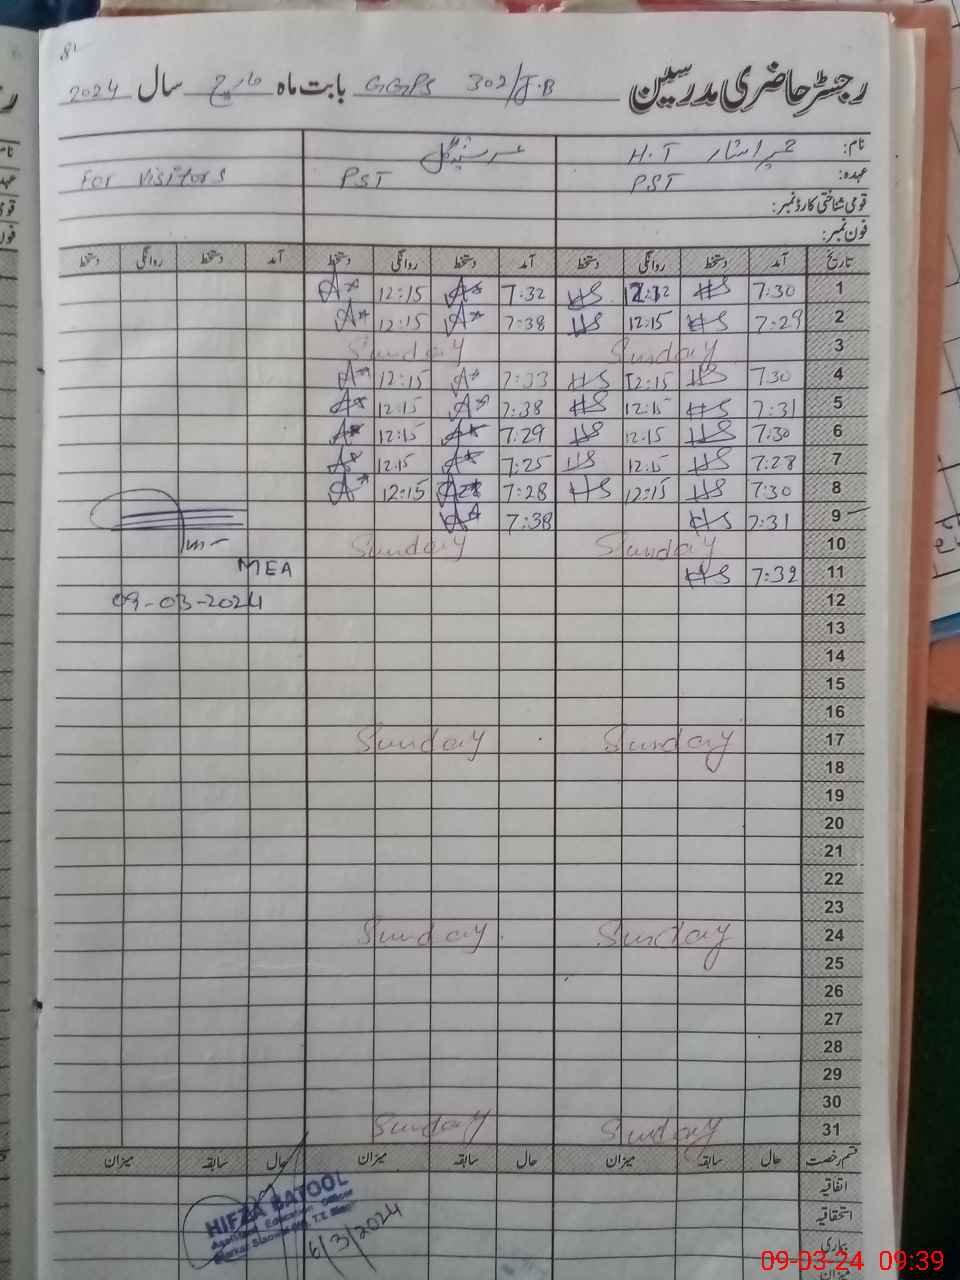 رجسٹر حاضری مدرسین GGPS 302/J.B بابت ماہ مارچ سال 2024
نام: H.T
عہدہ: PST PST For Visitors
قومی شناختی کارڈ نمبر:
فون نمبر:
تاریخ آمد دستخط روانگی دستخط آمد دستخط روانگی دستخط آمد دستخط روانگی دستخط
1 7:30 HS HS 7:32 A* 12:15 A*
2 7:29 HS 12:15 HS 7:38 A* 12:15 A*
3 Sunday Sunday
4 7:30 HS 12:15 HS 7:33 A* 12:15 A*
5 7:31 HS 12:15 HS 7:38 A* 12:15 A*
6 7:30 HS 12:15 HS 7:29 A* 12:15 A*
7 7:28 HS 12:15 HS 7:25 A* 12:15 A*
8 7:30 HS 12:15 HS 7:28 A* 12:15 A*
9 7:31 HS 7:38 A*
10 Sunday Sunday
11 7:32 HS MEA
12 09-03-2024
13
14
15
16
17 Sunday Sunday
18
19
20
21
22
23
24 Sunday Sunday
25
26
27
28
29
30
31 Sunday Sunday
قسم رخصت حال سابقہ میزان حال سابقہ میزان حال سابقہ میزان
اتفاقیہ
استحقاقیہ
بیماری
میزان
HIFZA BATOOL
Assistant Education Officer
6/3/2024
09-03-24 09:39